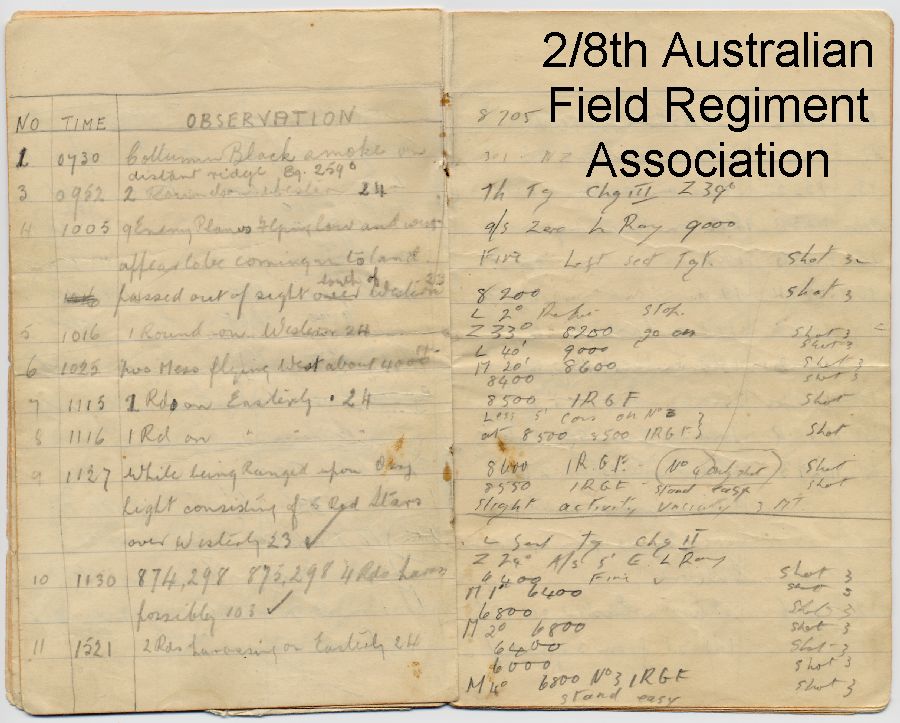 2/8th Australian
Field Regiment
Association
NO TIME OBSERVATION
1 0730 Collumn Black smoke on
distant ridge Bg. 259°
3 0952 2 Rounds on Western 24
4 1005 9 Enemy Planes flying low and west
appear to be coming in to land
passed out of sight south of Western 23
5 1016 1 Round on Western 24
6 1025 two Mess flying West about 4000ft
7 1115 1 Rd on Easterly 24
8 1116 1 Rd on " " "
9 1127 While being Ranged upon Day
Light consisting of 5 Red Stars
over Westerly 23 ✓
10 1130 874,298 875,298 4 Rds harass
possibly 103 ✓
11 1521 2 Rds harassing on Easterly 24
8705
301 NZ
Th Tg Chg III Z 39°
a/s Zero L Ray 9000
Fire Left sect Tgt. Shot 3
8200 Shot 3
L 2° stop.
Z 33° 8200 go on Shot 3
L 40' 9000 Shot 3
M 20' 8600 Shot 3
8400 Shot 3
8500 1RGF Shot
Less 5' Corr on No 3 }
at 8500 8500 1RGF } Shot
8600 1RGF (No 4 only shot) Shot
8550 1RGF stand easy Shot
Slight activity 3 MT.
L Tg Chg II
Z 29° A/S 5' E. L Ray
6400 Fire Shot 3
M 1° 6400 Shot 3
6800 Shot 3
M 2° 6800 Shot 3
6400 Shot 3
6000 Shot 3
M 4° 6800 No 3 1RGF Shot 3
stand easy